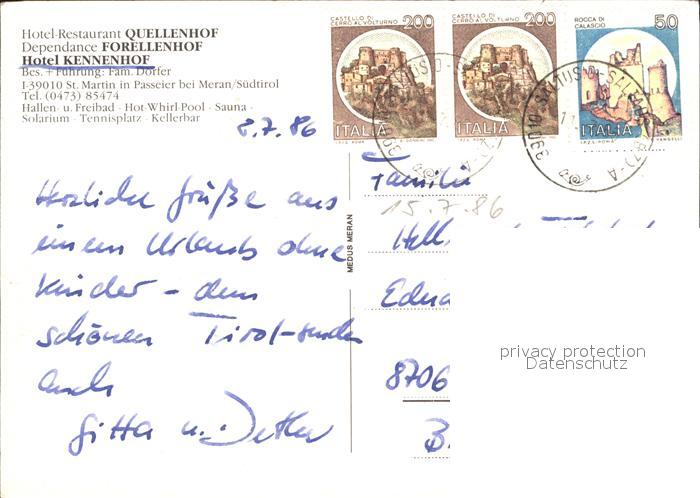 Hotel-Restaurant QUELLENHOF
Dependance FORELLENHOF
Hotel KENNENHOF
Bes. + Führung: Fam. Dorfer
I-39010 St. Martin in Passeier bei Meran/Südtirol
Tel. (0473) 85474
Hallen- u. Freibad · Hot-Whirl-Pool · Sauna ·
Solarium · Tennisplatz · Kellerbar
8.7.86
Herzliche Grüße aus
einem Urlaub ohne
Kinder – dem
schönen Tirol-
auch
Gitta u. Detlev
MEDUS MERAN
CASTELLO DI
CERRO AL VOLTURNO 200
ITALIA
CASTELLO DI
CERRO AL VOLTURNO 200
ITALIA
ROCCA DI
CALASCIO 50
ITALIA
Familie
15.7.86
8706
privacy protection
Datenschutz